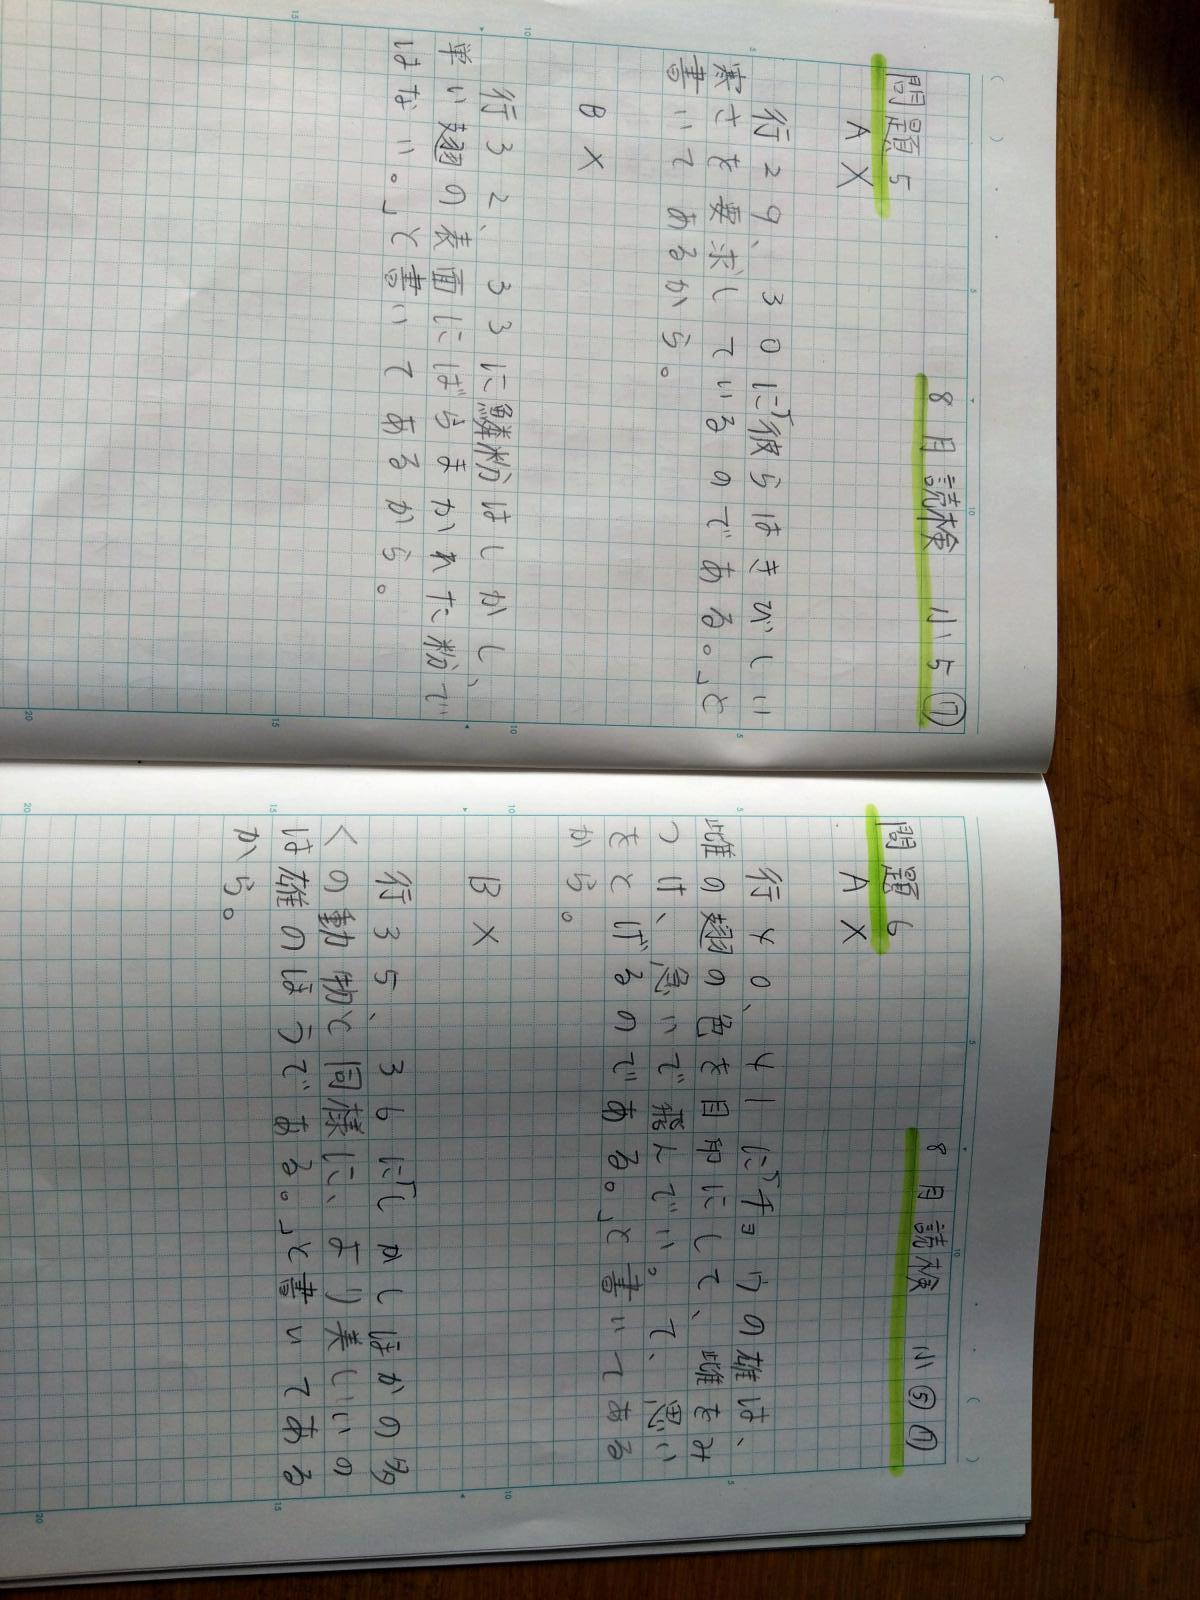 8月読検 小5⑦
問題5
A X
行29、30に「彼らはきびしい
寒さを要求しているのである。」と
書いてあるから。
B X
行32、33に鱗粉はしかし、
単い翅の表面にばらまかれた粉で
はない。」と書いてあるから。
8月読検 小⑤⑦
問題6
A X
行40、41に「チョウの雄は、
雌の翅の色を目印にして、雌をみ
つけ、急いで飛んでい。て、思い
をとげるのである。」と書いてある
から。
B X
行35、36に「しかしほかの多
くの動物と同様に、より美しいの
は雄のほうである。」と書いてある
から。